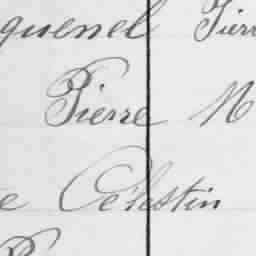 quenel Pierr
Pierre M
e Célestin